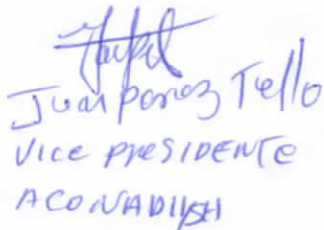 Juan Perez Tello
VICE PRESIDENTE
ACONADIYSH